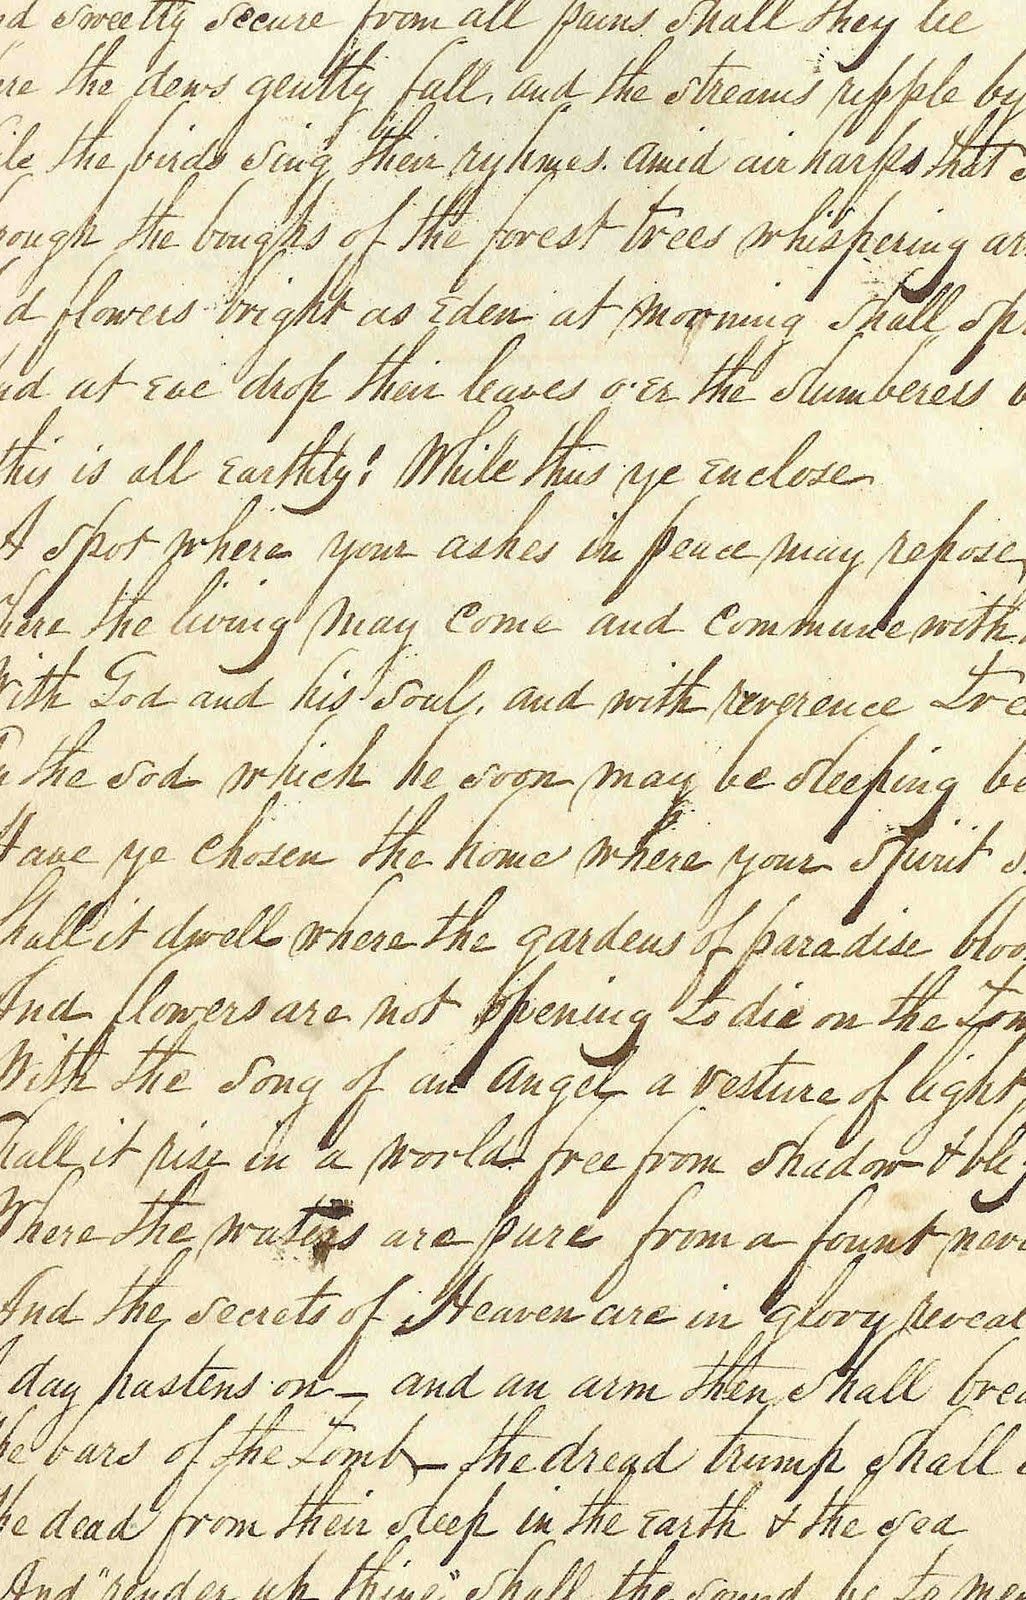 nd sweetly secure from all pains shall they lie
ere the dews gently fall, and the streams ripple by
ile the birds sing their ryhmes. amid air harps that
rough the boughs of the forest trees whispering ar
d flowers bright as Eden at morning shall sp
nd at Eve drop their leaves o'er the slumberers
this is all Earthly! While thus ye enclose
A spot where your ashes in peace may repose,
here the living may come and commune with
With God and his soul, and with reverence tre
the sod which he soon may be sleeping be
Have ye chosen the home where your spirit s
Shall it dwell where the gardens of paradise bloo
And flowers are not opening to die on the Tom
With the song of an angel a vesture of light,
hall it rise in a world free from shadow & bli
Where the waters are pure from a fount neve
And the secrets of Heaven are in glory reveal
day hastens on – and an arm then shall brea
he bars of the Tomb – the dread trump shall
he dead from their sleep in the Earth & the sea
And "render up thine" shall the sound